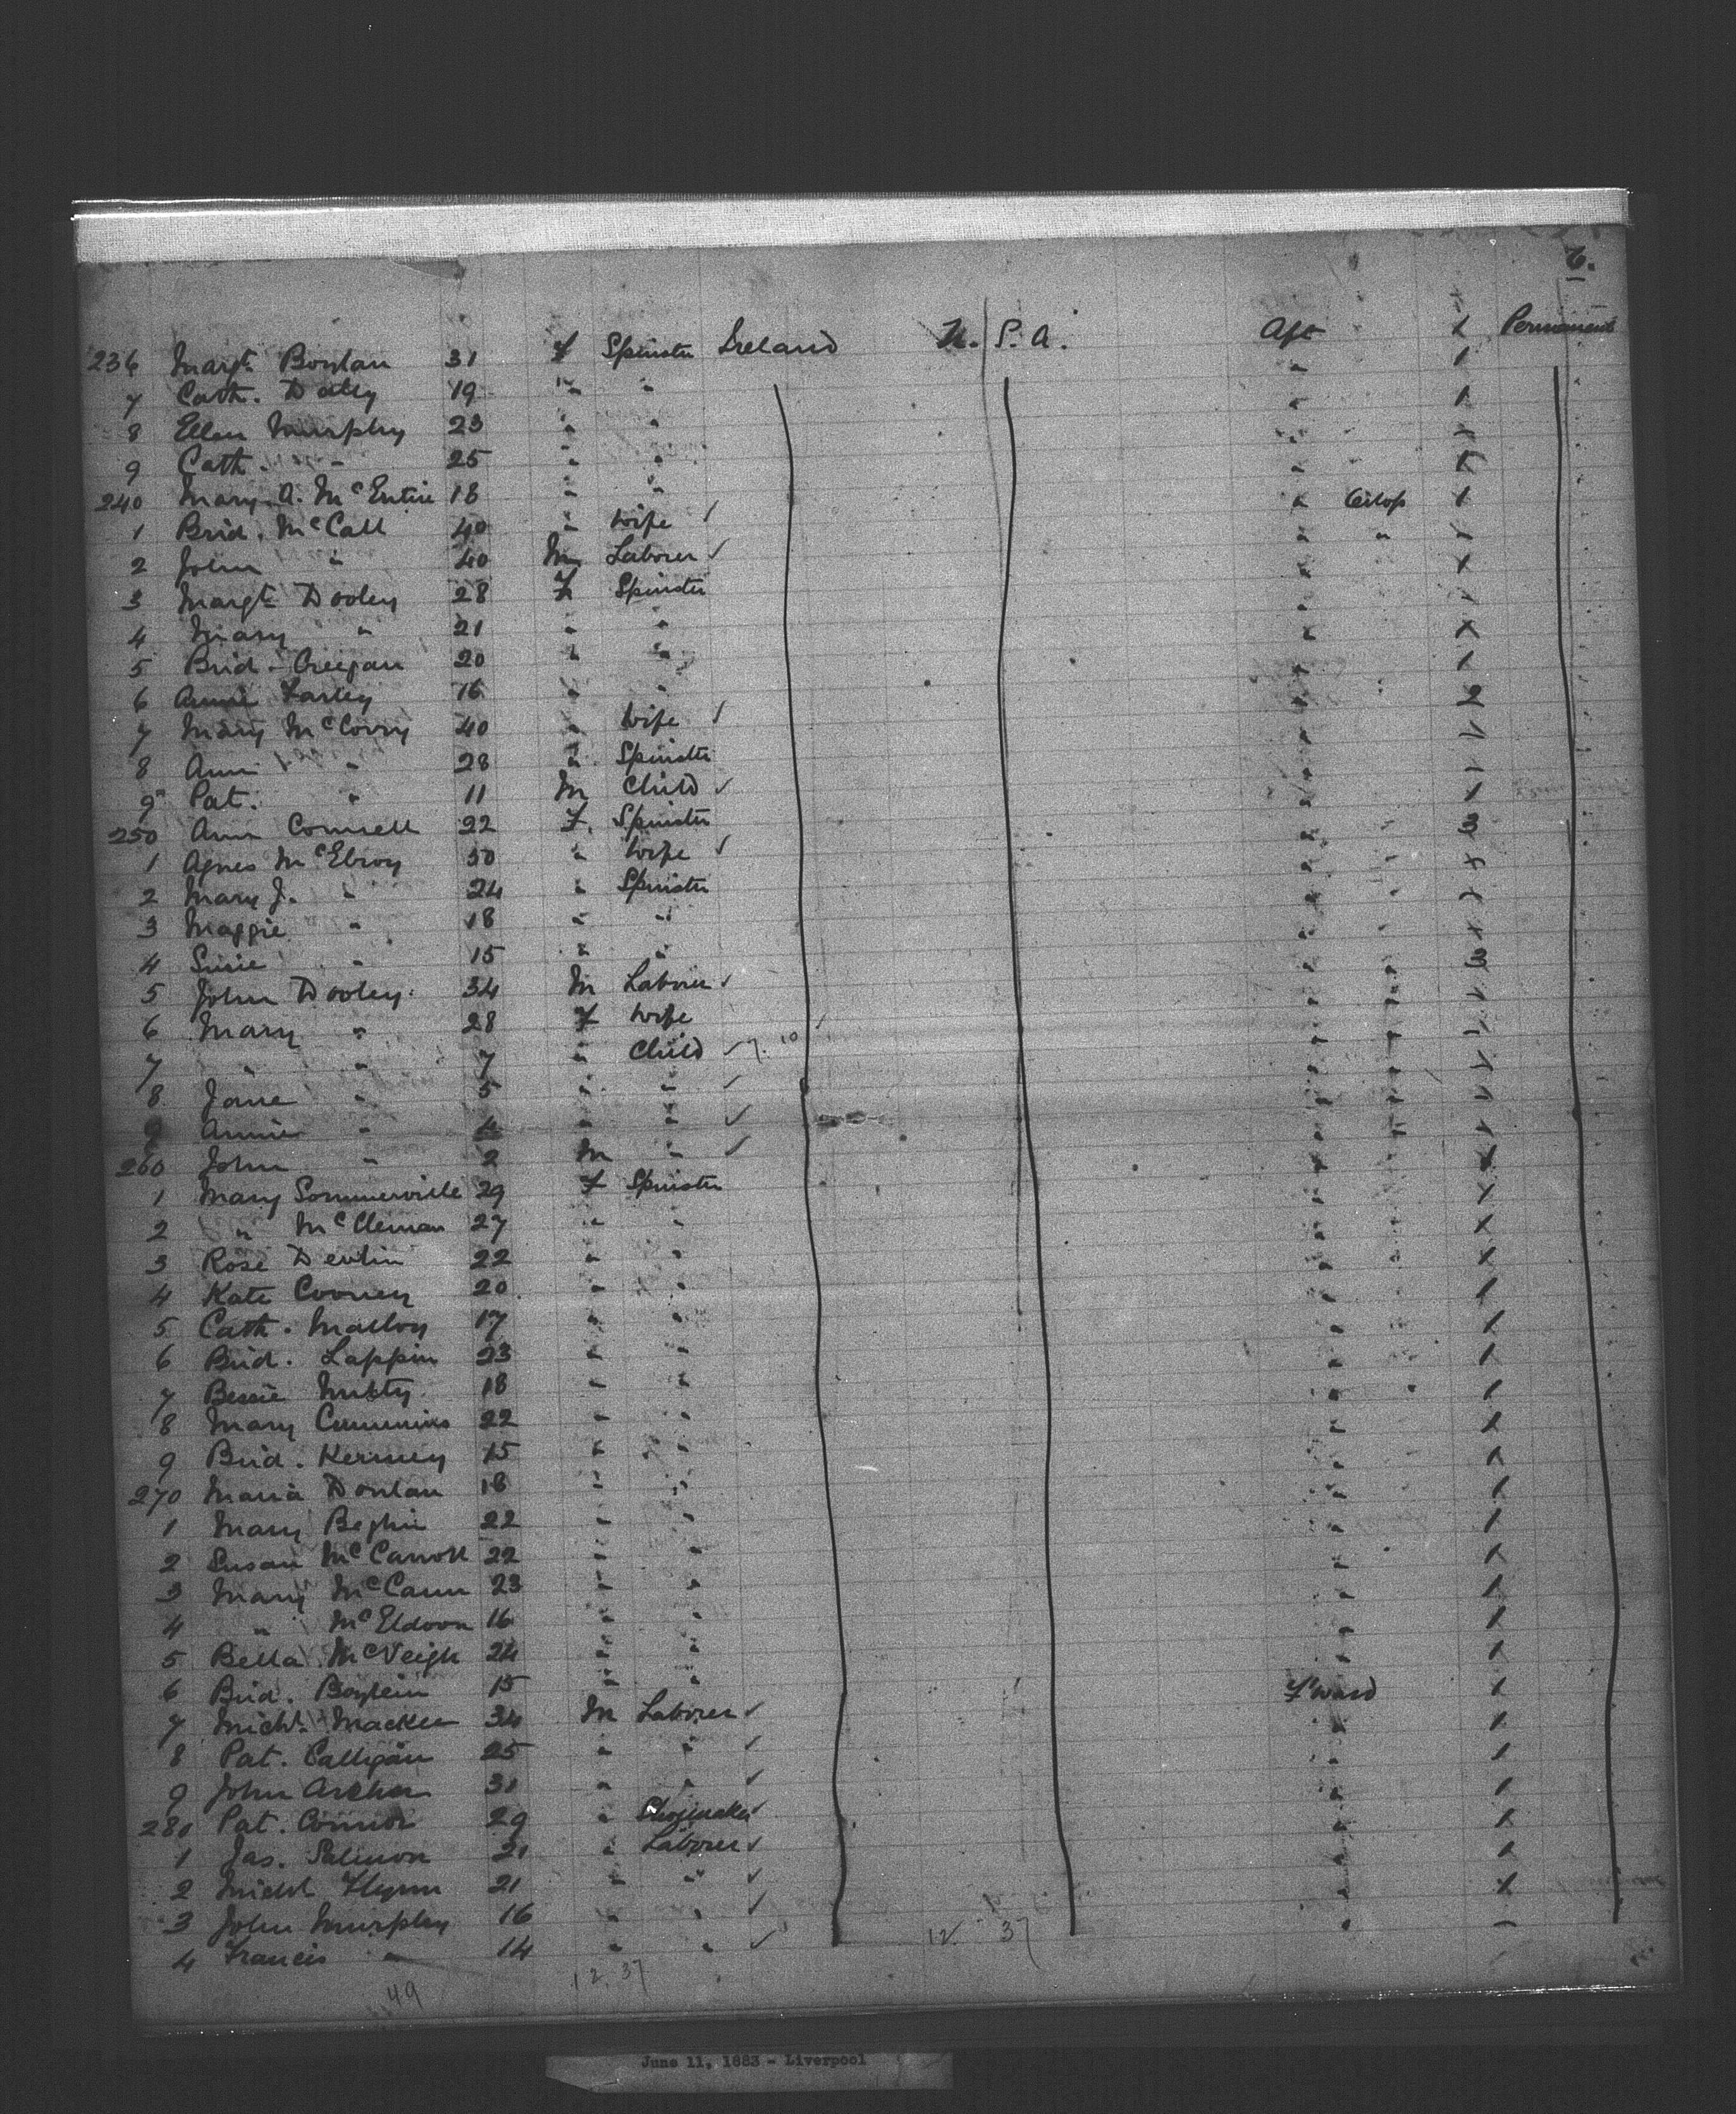 6.
236 Margt. Boylan 31 F Spinster Ireland U. S. A. Aft 1 Permanent
7 Cath. Daley 19 " " " 1
8 Ellen Murphy 23 " " " 1
9 Cath. " 25 " " "
240 Mary A. McEntire 18 " " "
1 Brid. McCall 40 " Wife ✓ " 1
2 John " 40 M Laborer ✓ " "
3 Margt. Dooley 28 F Spinster "
4 Mary " 21 " " "
5 Brid. Creegan 20 " " "
6 Annie Farley 16 " " " 1
7 Mary McCorry 40 " Wife ✓ " 2
8 Ann " 28 " Spinster "
9 Pat. " 11 M Child ✓ "
250 Ann Connell 22 F. Spinster " 1
1 Agnes McElroy 50 " Wife ✓ " 3
2 Mary J. " 24 " Spinster "
3 Maggie " 18 " " "
4 Susie " 15 " " "
5 John Dooley 34 M Laborer ✓ " 3
6 Mary " 28 F Wife "
7 " " 7 " Child ✓ "
8 Jane " 5 " " ✓ "
9 Annie " 4 " " ✓ "
260 John " 2 M " ✓ "
1 Mary Sommerville 29 F Spinster "
2 " McClernan 27 " " "
3 Rose Devlin 22 " " "
4 Kate Cooney 20 " " "
5 Cath. Malloy 17 " " " 1
6 Brid. Lappin 23 " " " 1
7 Bessie 18 " " " 1
8 Mary Cummins 22 " " " 1
9 Brid. Kerney 15 " " " 1
270 Maria Donlan 18 " " " 1
1 Mary Beglin 22 " " " 1
2 Susan McCarroll 22 " " " 1
3 Mary McCann 23 " " " 1
4 " McEldoon 16 " " " 1
5 Bella McVeigh 24 " " " 1
6 Brid. 15 " " " 1
7 Michl. Mackee 34 M Laborer ✓ F'ward 1
8 Pat. Calligan 25 " " ✓ " 1
9 John Archer 31 " " ✓ " 1
280 Pat. Connor 29 " Shoemaker ✓ " 1
1 Jas. Salmon 21 " Laborer ✓ " 1
2 Michl Flynn 21 " " ✓ " 1
3 John Murphy 16 " " ✓ " 1
4 Francis " 14 " " ✓ "
12 37
49 12. 37
June 11, 1883 - Liverpool